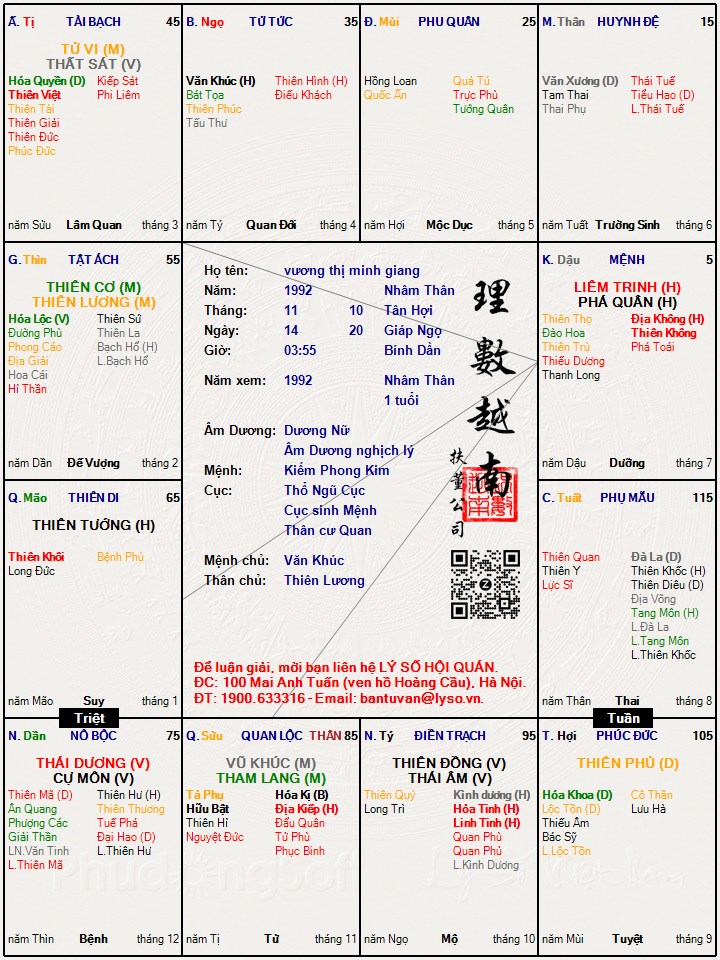 Ấ. Tị TÀI BẠCH 45
TỬ VI (M)
THẤT SÁT (V)
Hóa Quyền (D) Kiếp Sát
Thiên Việt Phi Liêm
Thiên Tài
Thiên Giải
Thiên Đức
Phúc Đức
năm Sửu Lâm Quan tháng 3
B. Ngọ TỬ TỨC 35
Văn Khúc (H) Thiên Hình (H)
Bát Tọa Điếu Khách
Thiên Phúc
Tấu Thư
năm Tý Quan Đới tháng 4
Đ. Mùi PHU QUÂN 25
Hồng Loan Quả Tú
Quốc Ấn Trực Phù
Tướng Quân
năm Hợi Mộc Dục tháng 5
M. Thân HUYNH ĐỆ 15
Văn Xương (D) Thái Tuế
Tam Thai Tiểu Hao (D)
Thai Phụ L.Thái Tuế
năm Tuất Trường Sinh tháng 6
G. Thìn TẬT ÁCH 55
THIÊN CƠ (M)
THIÊN LƯƠNG (M)
Hóa Lộc (V) Thiên Sứ
Đường Phù Thiên La
Phong Cáo Bạch Hổ (H)
Địa Giải L.Bạch Hổ
Hoa Cái
Hỉ Thần
năm Dần Đế Vượng tháng 2
Họ tên: vương thị minh giang
Năm: 1992 Nhâm Thân
Tháng: 11 10 Tân Hợi
Ngày: 14 20 Giáp Ngọ
Giờ: 03:55 Bính Dần
Năm xem: 1992 Nhâm Thân
1 tuổi
Âm Dương: Dương Nữ
Âm Dương nghịch lý
Mệnh: Kiếm Phong Kim
Cục: Thổ Ngũ Cục
Cục sinh Mệnh
Thân cư Quan
Mệnh chủ: Văn Khúc
Thân chủ: Thiên Lương
理數越南
扶董公司
Để luận giải, mời bạn liên hệ LÝ SỐ HỘI QUÁN.
ĐC: 100 Mai Anh Tuấn (ven hồ Hoàng Cầu), Hà Nội.
ĐT: 1900.633316 - Email: bantuvan@lyso.vn.
K. Dậu MỆNH 5
LIÊM TRINH (H)
PHÁ QUÂN (H)
Thiên Thọ Địa Không (H)
Đào Hoa Thiên Không
Thiên Trù Phá Toái
Thiếu Dương
Thanh Long
năm Dậu Dưỡng tháng 7
Q. Mão THIÊN DI 65
THIÊN TƯỚNG (H)
Thiên Khôi Bệnh Phù
Long Đức
năm Mão Suy tháng 1
Triệt
C. Tuất PHỤ MẪU 115
Thiên Quan Đà La (D)
Thiên Y Thiên Khốc (H)
Lực Sĩ Thiên Diêu (D)
Địa Võng
Tang Môn (H)
L.Đà La
L.Tang Môn
L.Thiên Khốc
năm Thân Thai tháng 8
Tuần
N. Dần NÔ BỘC 75
THÁI DƯƠNG (V)
CỰ MÔN (V)
Thiên Mã (D) Thiên Hư (H)
Ân Quang Thiên Thương
Phượng Các Tuế Phá
Giải Thần Đại Hao (D)
LN.Văn Tinh L.Thiên Hư
L.Thiên Mã
năm Thìn Bệnh tháng 12
Q. Sửu QUAN LỘC THÂN 85
VŨ KHÚC (M)
THAM LANG (M)
Tả Phụ Hóa Kị (B)
Hữu Bật Địa Kiếp (H)
Thiên Hỉ Đẩu Quân
Nguyệt Đức Tử Phù
Phục Binh
năm Tị Tử tháng 11
N. Tý ĐIỀN TRẠCH 95
THIÊN ĐỒNG (V)
THÁI ÂM (V)
Thiên Quý Kình dương (H)
Long Trì Hỏa Tinh (H)
Linh Tinh (H)
Quan Phù
Quan Phủ
L.Kình Dương
năm Ngọ Mộ tháng 10
T. Hợi PHÚC ĐỨC 105
THIÊN PHỦ (D)
Hóa Khoa (D) Cô Thần
Lộc Tồn (D) Lưu Hà
Thiếu Âm
Bác Sỹ
L.Lộc Tồn
năm Mùi Tuyệt tháng 9